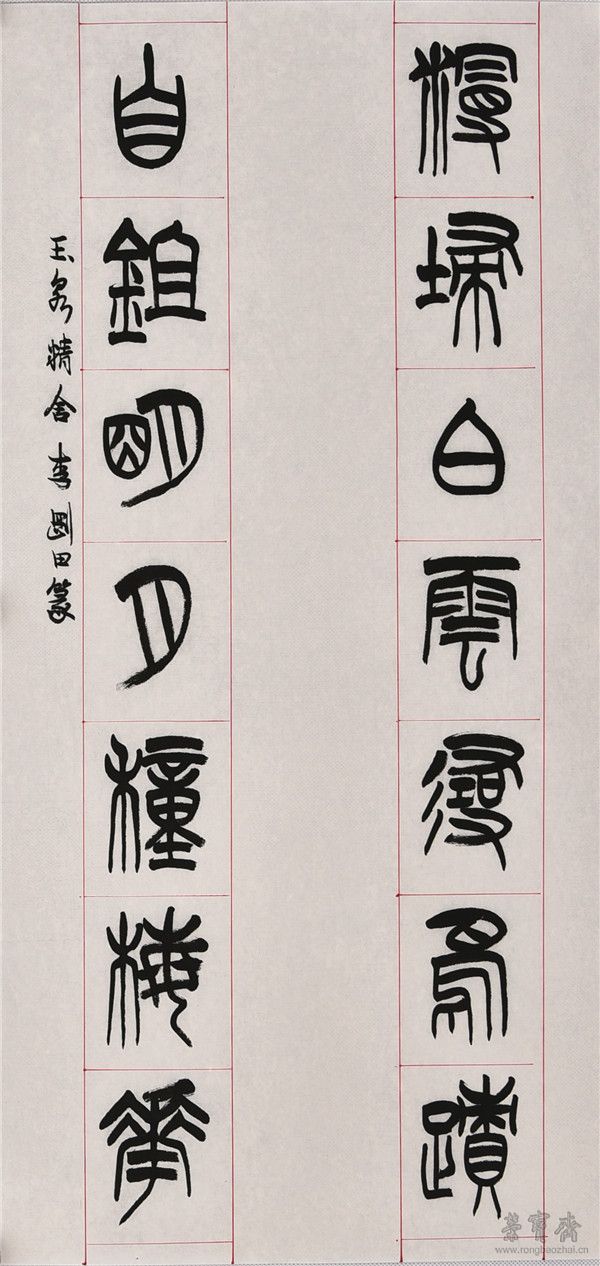 漫埽白雲尋鳥蹟
自鉏朙月穜梅華
玉泉精舍李剛田篆
榮寶齋
www.rongbaozhai.cn